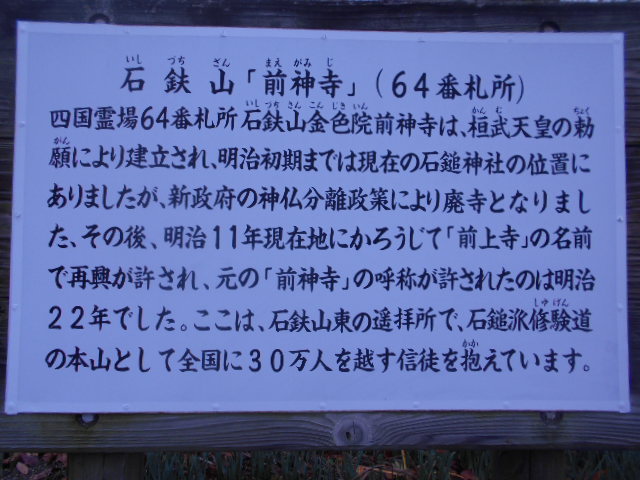 いし づち ざん まえ がみ じ
石鈇山「前神寺」(64番札所)
いし づち さん こん じき いん かん む ちょく
四国霊場64番札所石鈇山金色院前神寺は、桓武天皇の勅
がん
願により建立され、明治初期までは現在の石鎚神社の位置に
ありましたが、新政府の神仏分離政策により廃寺となりまし
た、その後、明治11年現在地にかろうじて「前上寺」の名前
で再興が許され、元の「前神寺」の呼称が許されたのは明治
しゅ げん
22年でした。ここは、石鈇山東の遥拝所で、石鎚派修験道
かか
の本山として全国に30万人を越す信徒を抱えています。